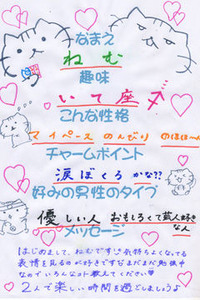 なまえ
ねむ
趣味
いて座
こんな性格
マイペース のんびり のほほ〜ん
チャームポイント
涙ぼくろ かな??
好みの男性のタイプ
優しい人 おもしろくて芸人好きな人
メッセージ
はじめまして、ねむです♡気持ちよくなってる
表情を見るのが好きですがまだまだ勉強中
なのでいろんなコト教えてください♥
2人で楽しい時間を過ごしましょう♪